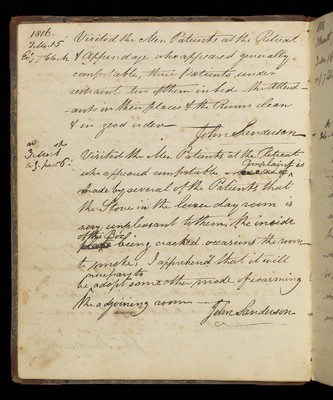 1816.
2 Mo. 15
Visited the Men Patients at the Retreat
& Appendage who appeared generally
comfortable, three patients under
restraint two of them in bed the Attend-
-ants in their places & the Rooms clean
& in good order —
John Sanderson
3 Mo. 1
Visited the Men Patients at the Retreat
who appeared comfortable — Complaint is
made by several of the Patients that
the Stove in the lower day room is
very unpleasant to them, the inside
of the Back being cracked occasions the room
to smoke, I apprehend that it will
be necessary to adopt some other mode of warming
the adjoining room —
John Sanderson